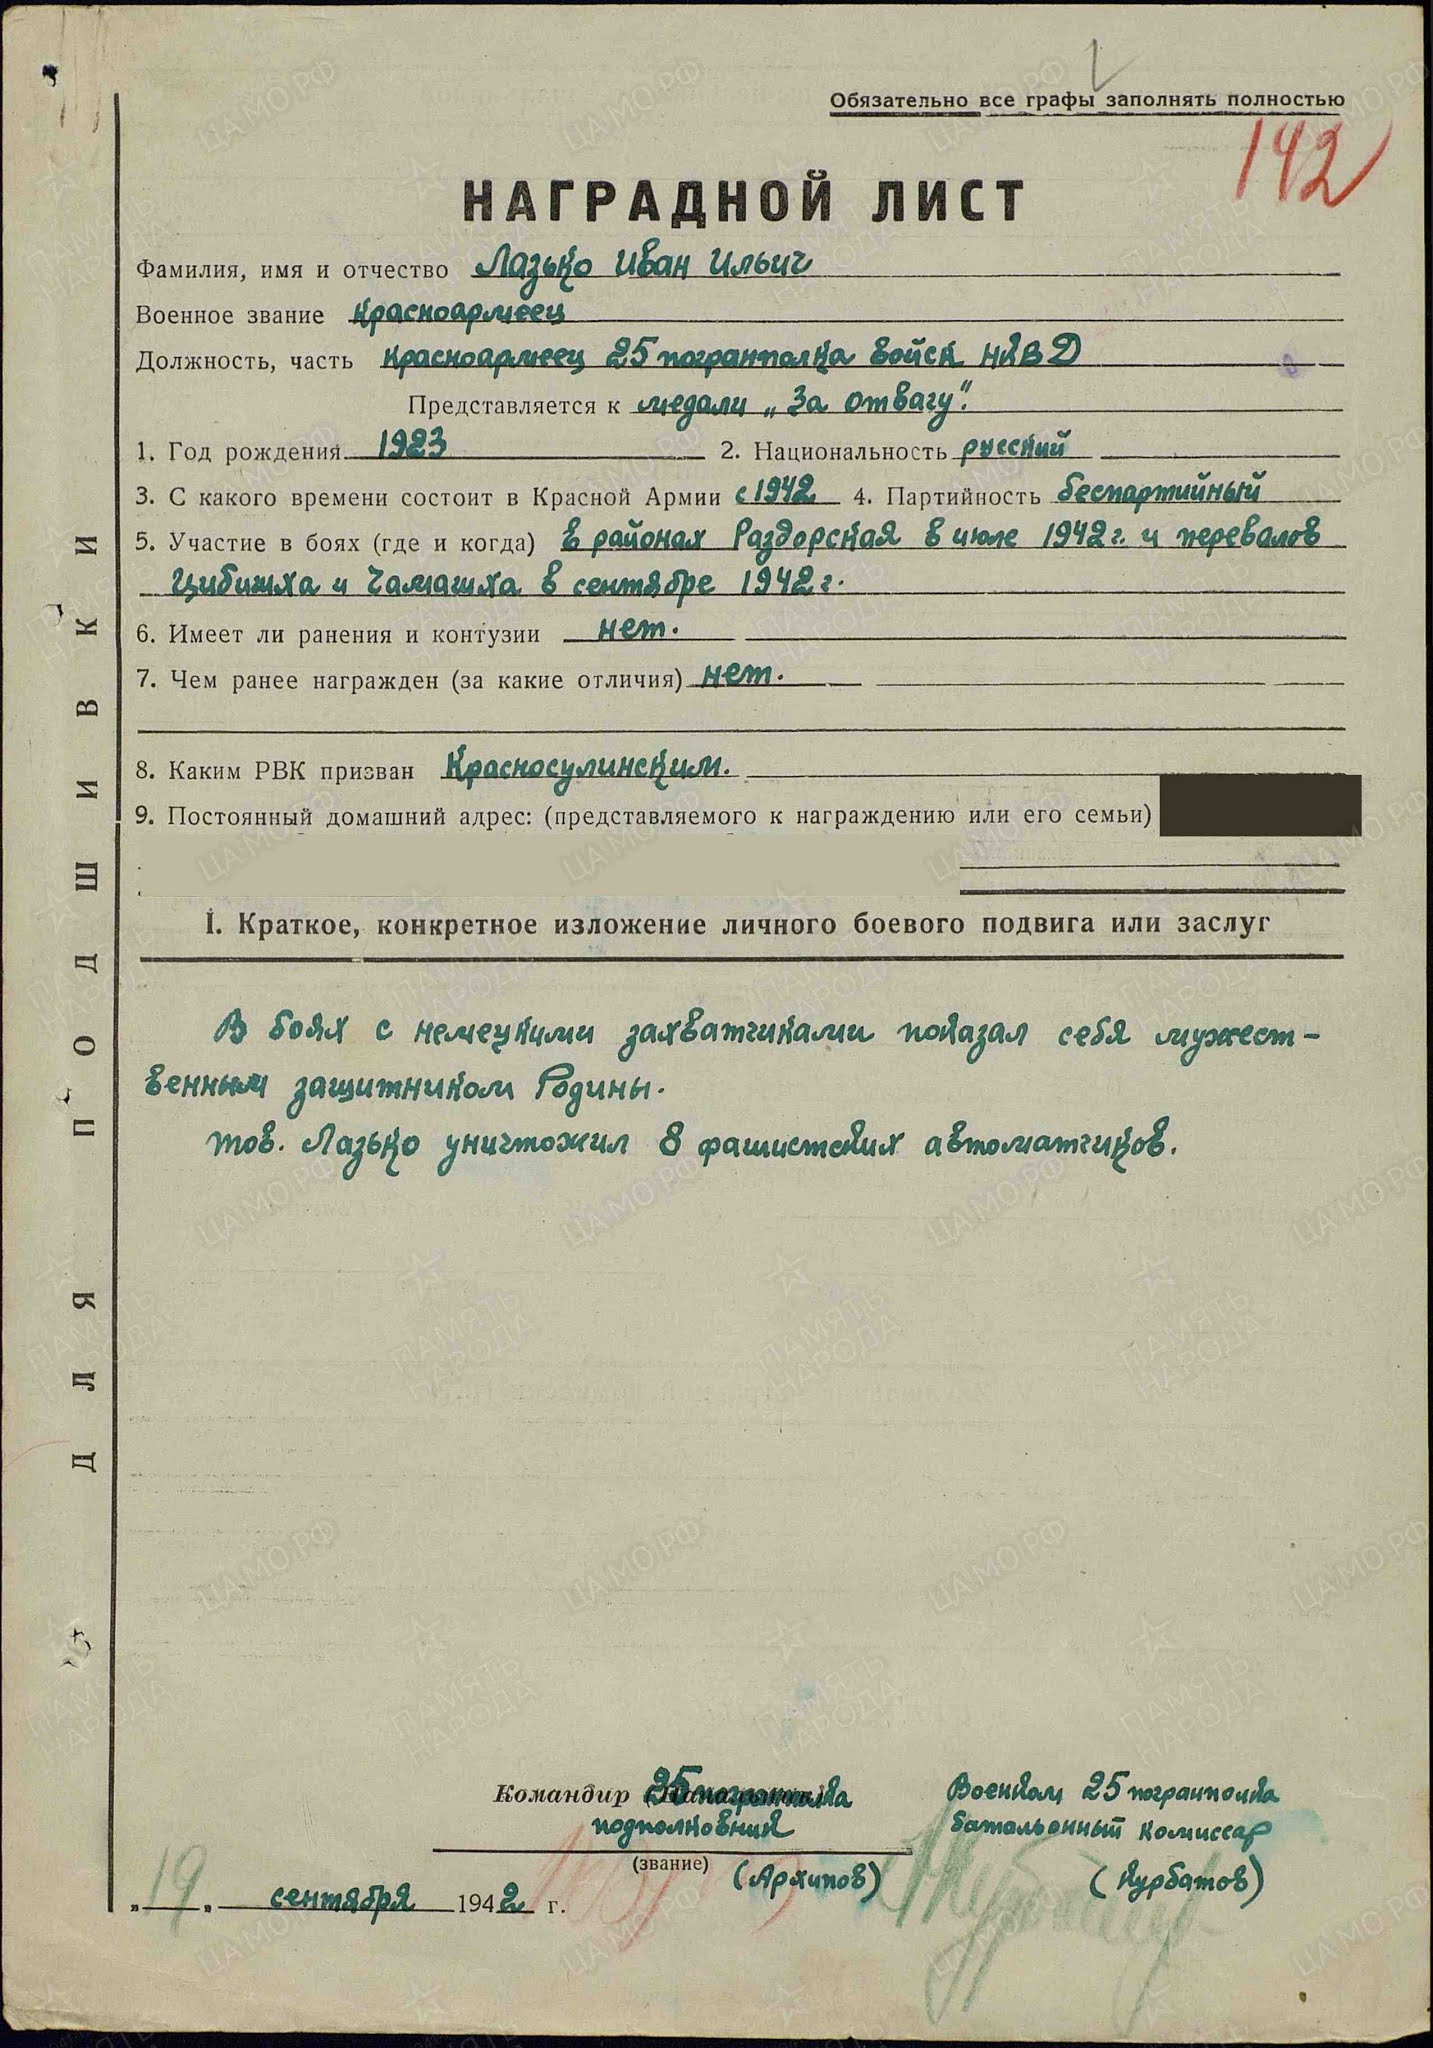 Обязательно все графы заполнять полностью
142
НАГРАДНОЙ ЛИСТ
Фамилия, имя и отчество Лазько Иван Ильич
Военное звание Красноармеец
Должность, часть Красноармеец 25 погранполка войск НКВД
Представляется к медали „За отвагу".
1. Год рождения 1923 2. Национальность русский
3. С какого времени состоит в Красной Армии с 1942 4. Партийность беспартийный
5. Участие в боях (где и когда) в районах Раздорская в июле 1942 г. и перевалов
Цибишха и Чамашха в сентябре 1942 г.
6. Имеет ли ранения и контузии нет.
7. Чем ранее награжден (за какие отличия) нет.
8. Каким РВК призван Красносулинским.
9. Постоянный домашний адрес: (представляемого к награждению или его семьи)
I. Краткое, конкретное изложение личного боевого подвига или заслуг
В боях с немецкими захватчиками показал себя мужест-
венным защитником Родины.
тов. Лазько уничтожил 8 фашистских автоматчиков.
Командир 25 погранполка
подполковник
(звание) (Архипов)
Военком 25 погранполка
батальонный комиссар
(Курбатов)
„19„ сентября 1942 г.
ДЛЯ ПОДШИВКИ
ЦАМО.РФ
ПАМЯТЬ
НАРОДА